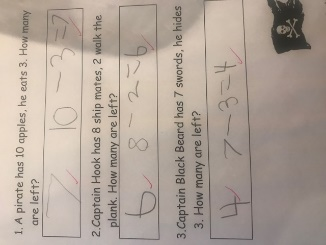 1. A pirate has 10 apples, he eats 3. How many
are left?
7 10-3=7
2.Captain Hook has 8 ship mates, 2 walk the
plank. How many are left?
6 8-2=6
3.Captain Black Beard has 7 swords, he hides
3. How many are left?
4 7-3=4